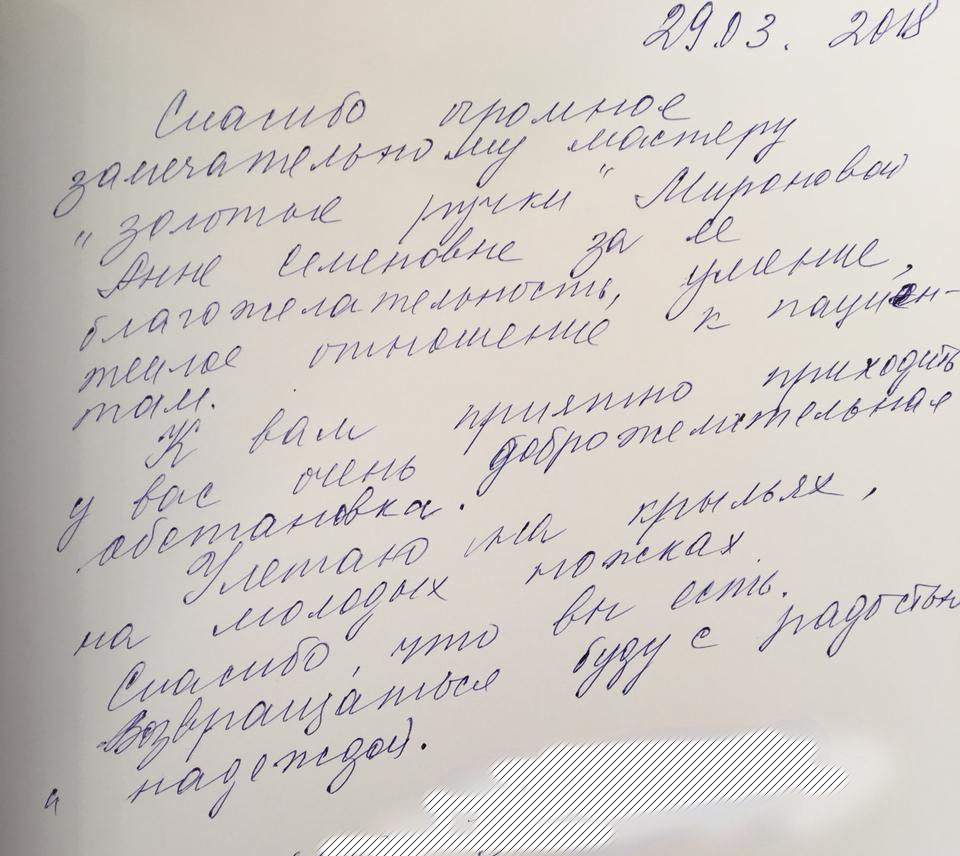 29.03. 2018
Спасибо огромное
замечательному мастеру
"золотые ручки" Мироновой
Анне Семеновне за ее
благожелательность, умение,
теплое отношение к пациен-
там.
К вам приятно приходить
у вас очень доброжелательная
обстановка.
Улетаю на крыльях,
на молодых ножках
Спасибо, что вы есть.
Возвращаться буду с радостью
и надеждой.